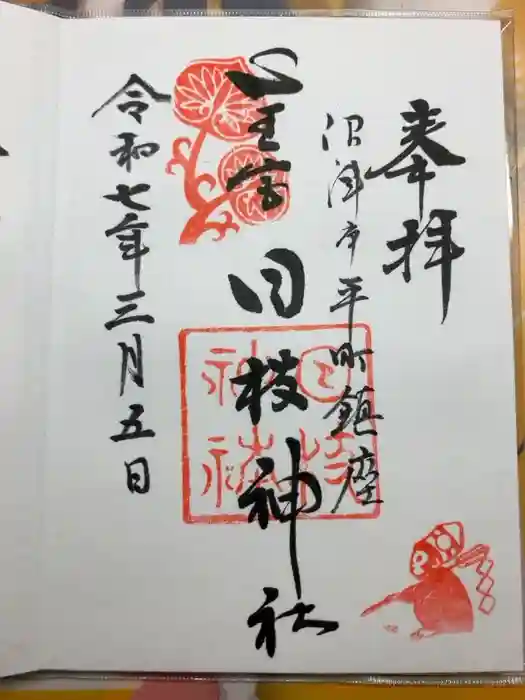 奉拝
沼津市平町鎮座
山王宮
日枝神社
日枝
神社
令和七年三月五日